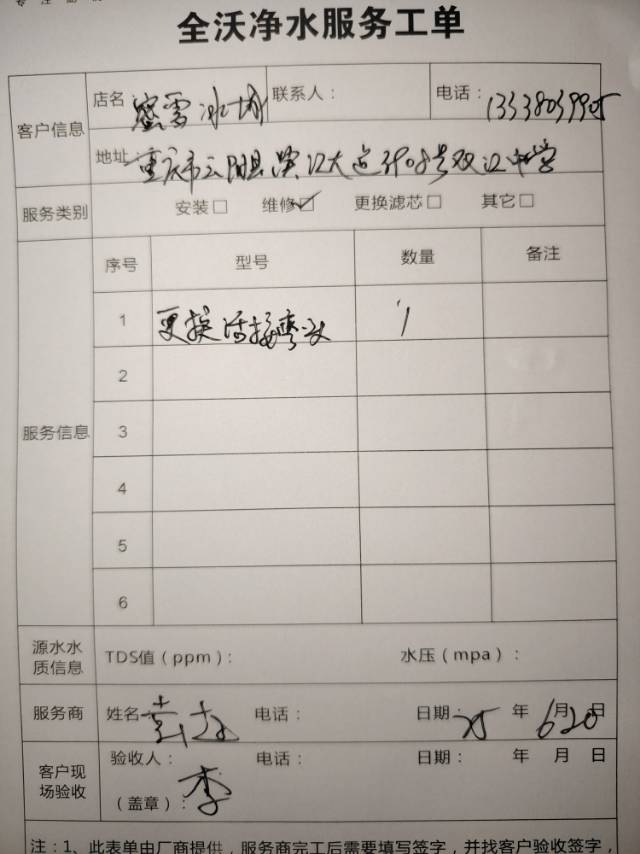 全沃净水服务工单
客户信息
店名 蜜雪冰城 联系人： 电话：
地址：重庆市云阳县滨江大道 号双江中学
服务类别 安装□ 维修☑ 更换滤芯□ 其它□
服务信息
序号 型号 数量 备注
1 更换活接弯 1
2
3
4
5
6
源水水
质信息
TDS值（ppm）： 水压（mpa）：
服务商 姓名 电话： 日期：25 年 6月20日
客户现
场验收
验收人： 电话： 日期： 年 月 日
（盖章）：李
注：1、此表单由厂商提供，服务商完工后需要填写签字，并找客户验收签字，